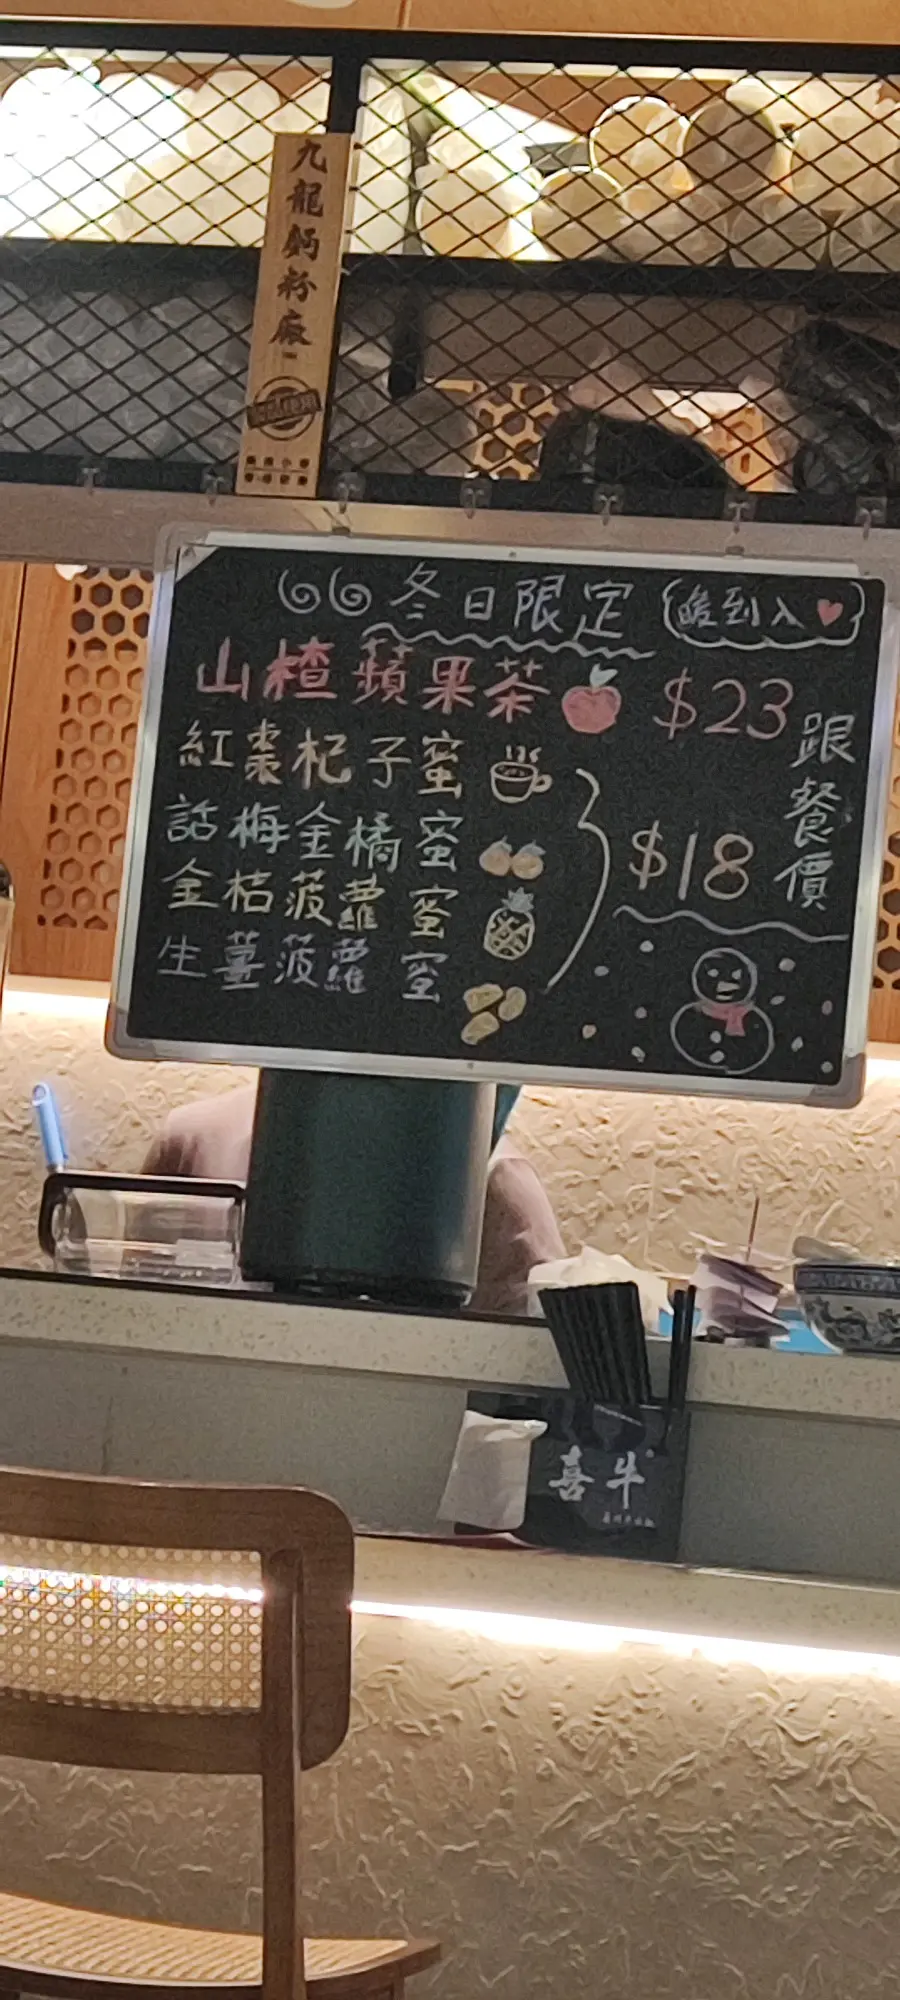 九龍鈎粉廠
冬日限定
暖到入
山楂蘋果茶 $23
紅棗杞子蜜
話梅金橘蜜
金桔菠蘿蜜
生薑菠蘿蜜
$18
跟餐價
喜牛